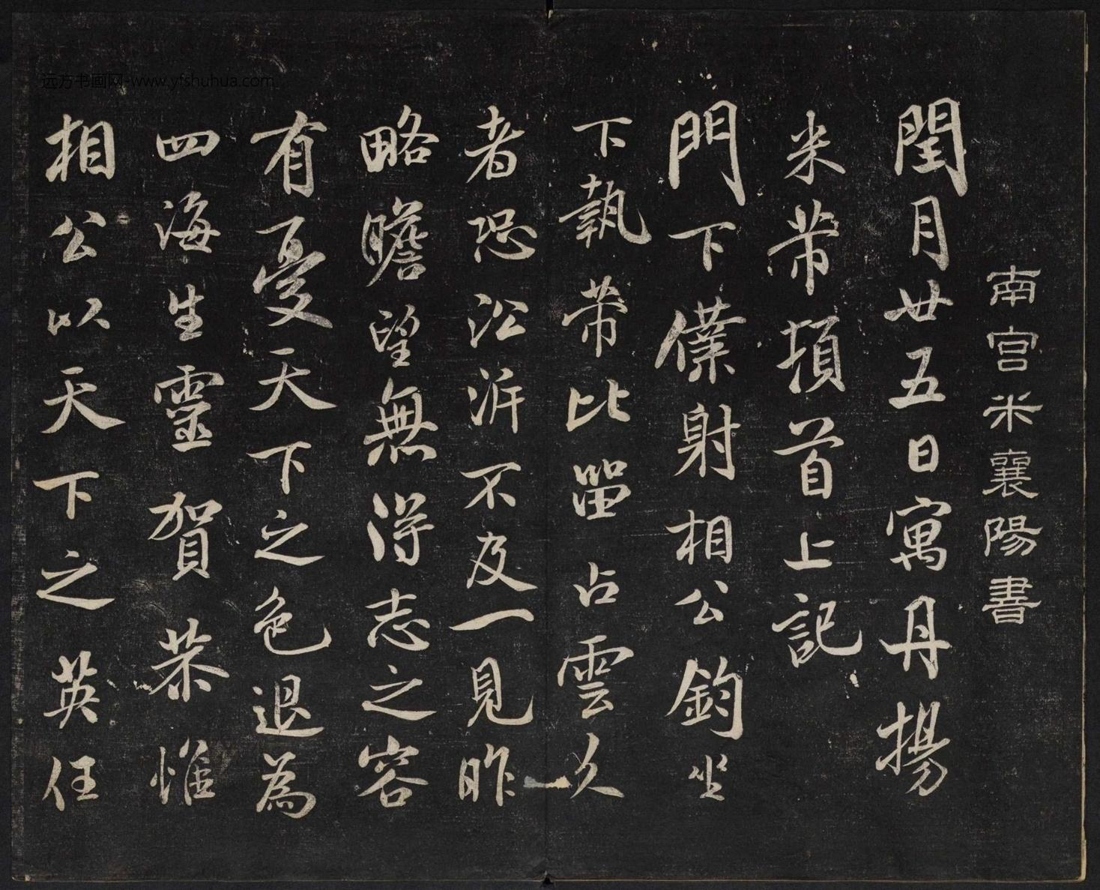 南宫米襄陽書
閏月廿五日寓丹揚
米芾頓首上記
門下僕射相公鈞坐
下執芾比畱占雲久
者恐沿泝不及一見昨
略瞻望無得志之容
有憂天下之色退為
四海生靈賀恭惟
相公以天下之英任
远方书画网-www.yfshuhua.com